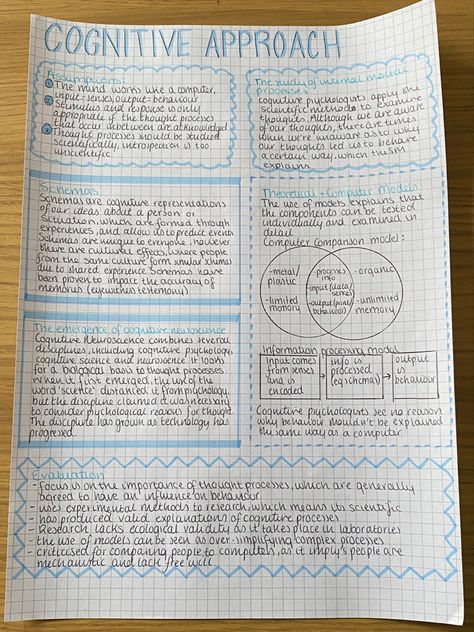 COGNITIVE APPROACH
Assumptions:
① The mind works like a computer,
input=senses, output=behaviour
② Stimulus and response is only
appropriate if the thought processes
that occur inbetween are acknowledged
③ Thought processes should be studied
scientifically, introspection is too
unscientific
The study of internal mental
processes:
cognitive psychologists apply
scientific methods to examine
thoughts. Although we are aware
of our thoughts, there are times
when we're unaware as to why
our thoughts led us to behave
a certain way, which this
explains
Schemas
Schemas are cognitive representations
of our ideas about a person or
situation, which are formed through
experiences, and allow us to predict events
Schemas are unique to everyone, however
there are cultural effects, where people
from the same culture form similar schemas
due to shared experience. Schemas have
been proven to impact the accuracy of
memories (eyewitness testimony)
Theoretical + Computer Models
The use of models explains that
the components can be tested
individually and examined in
detail
Computer comparison model:
-metal/
plastic
-limited
memory
-process
info
-input (data/
senses)
-output (print/
behaviour)
-organic
-unlimited
memory
Information processing model
input comes
from senses
and is
encoded
info is
processed
(eg schemas)
output
is
behaviour
Cognitive psychologists see no reason
why behaviour shouldn't be explained
the same way as a computer
The emergence of cognitive neuroscience
Cognitive Neuroscience combines several
disciplines, including cognitive psychology,
cognitive science and neuroscience. it looks
for a biological basis to thought processes
When it first emerged, the use of the
word 'science' distanced it from psychology,
but the discipline claimed it was necessary
to consider psychological reasons for thought.
The discipline has grown as technology has
progressed.
Evaluation
- Focus is on the importance of thought processes, which are generally
agreed to have an influence on behaviour
- uses experimental methods to research, which means its scientific
- has produced valid explanations of cognitive processes
- Research lacks ecological validity as it takes place in laboratories
- the use of models can be seen as over-simplifying complex processes
- criticised for comparing people to computers, as it imply's people are
mechanistic and lack free will